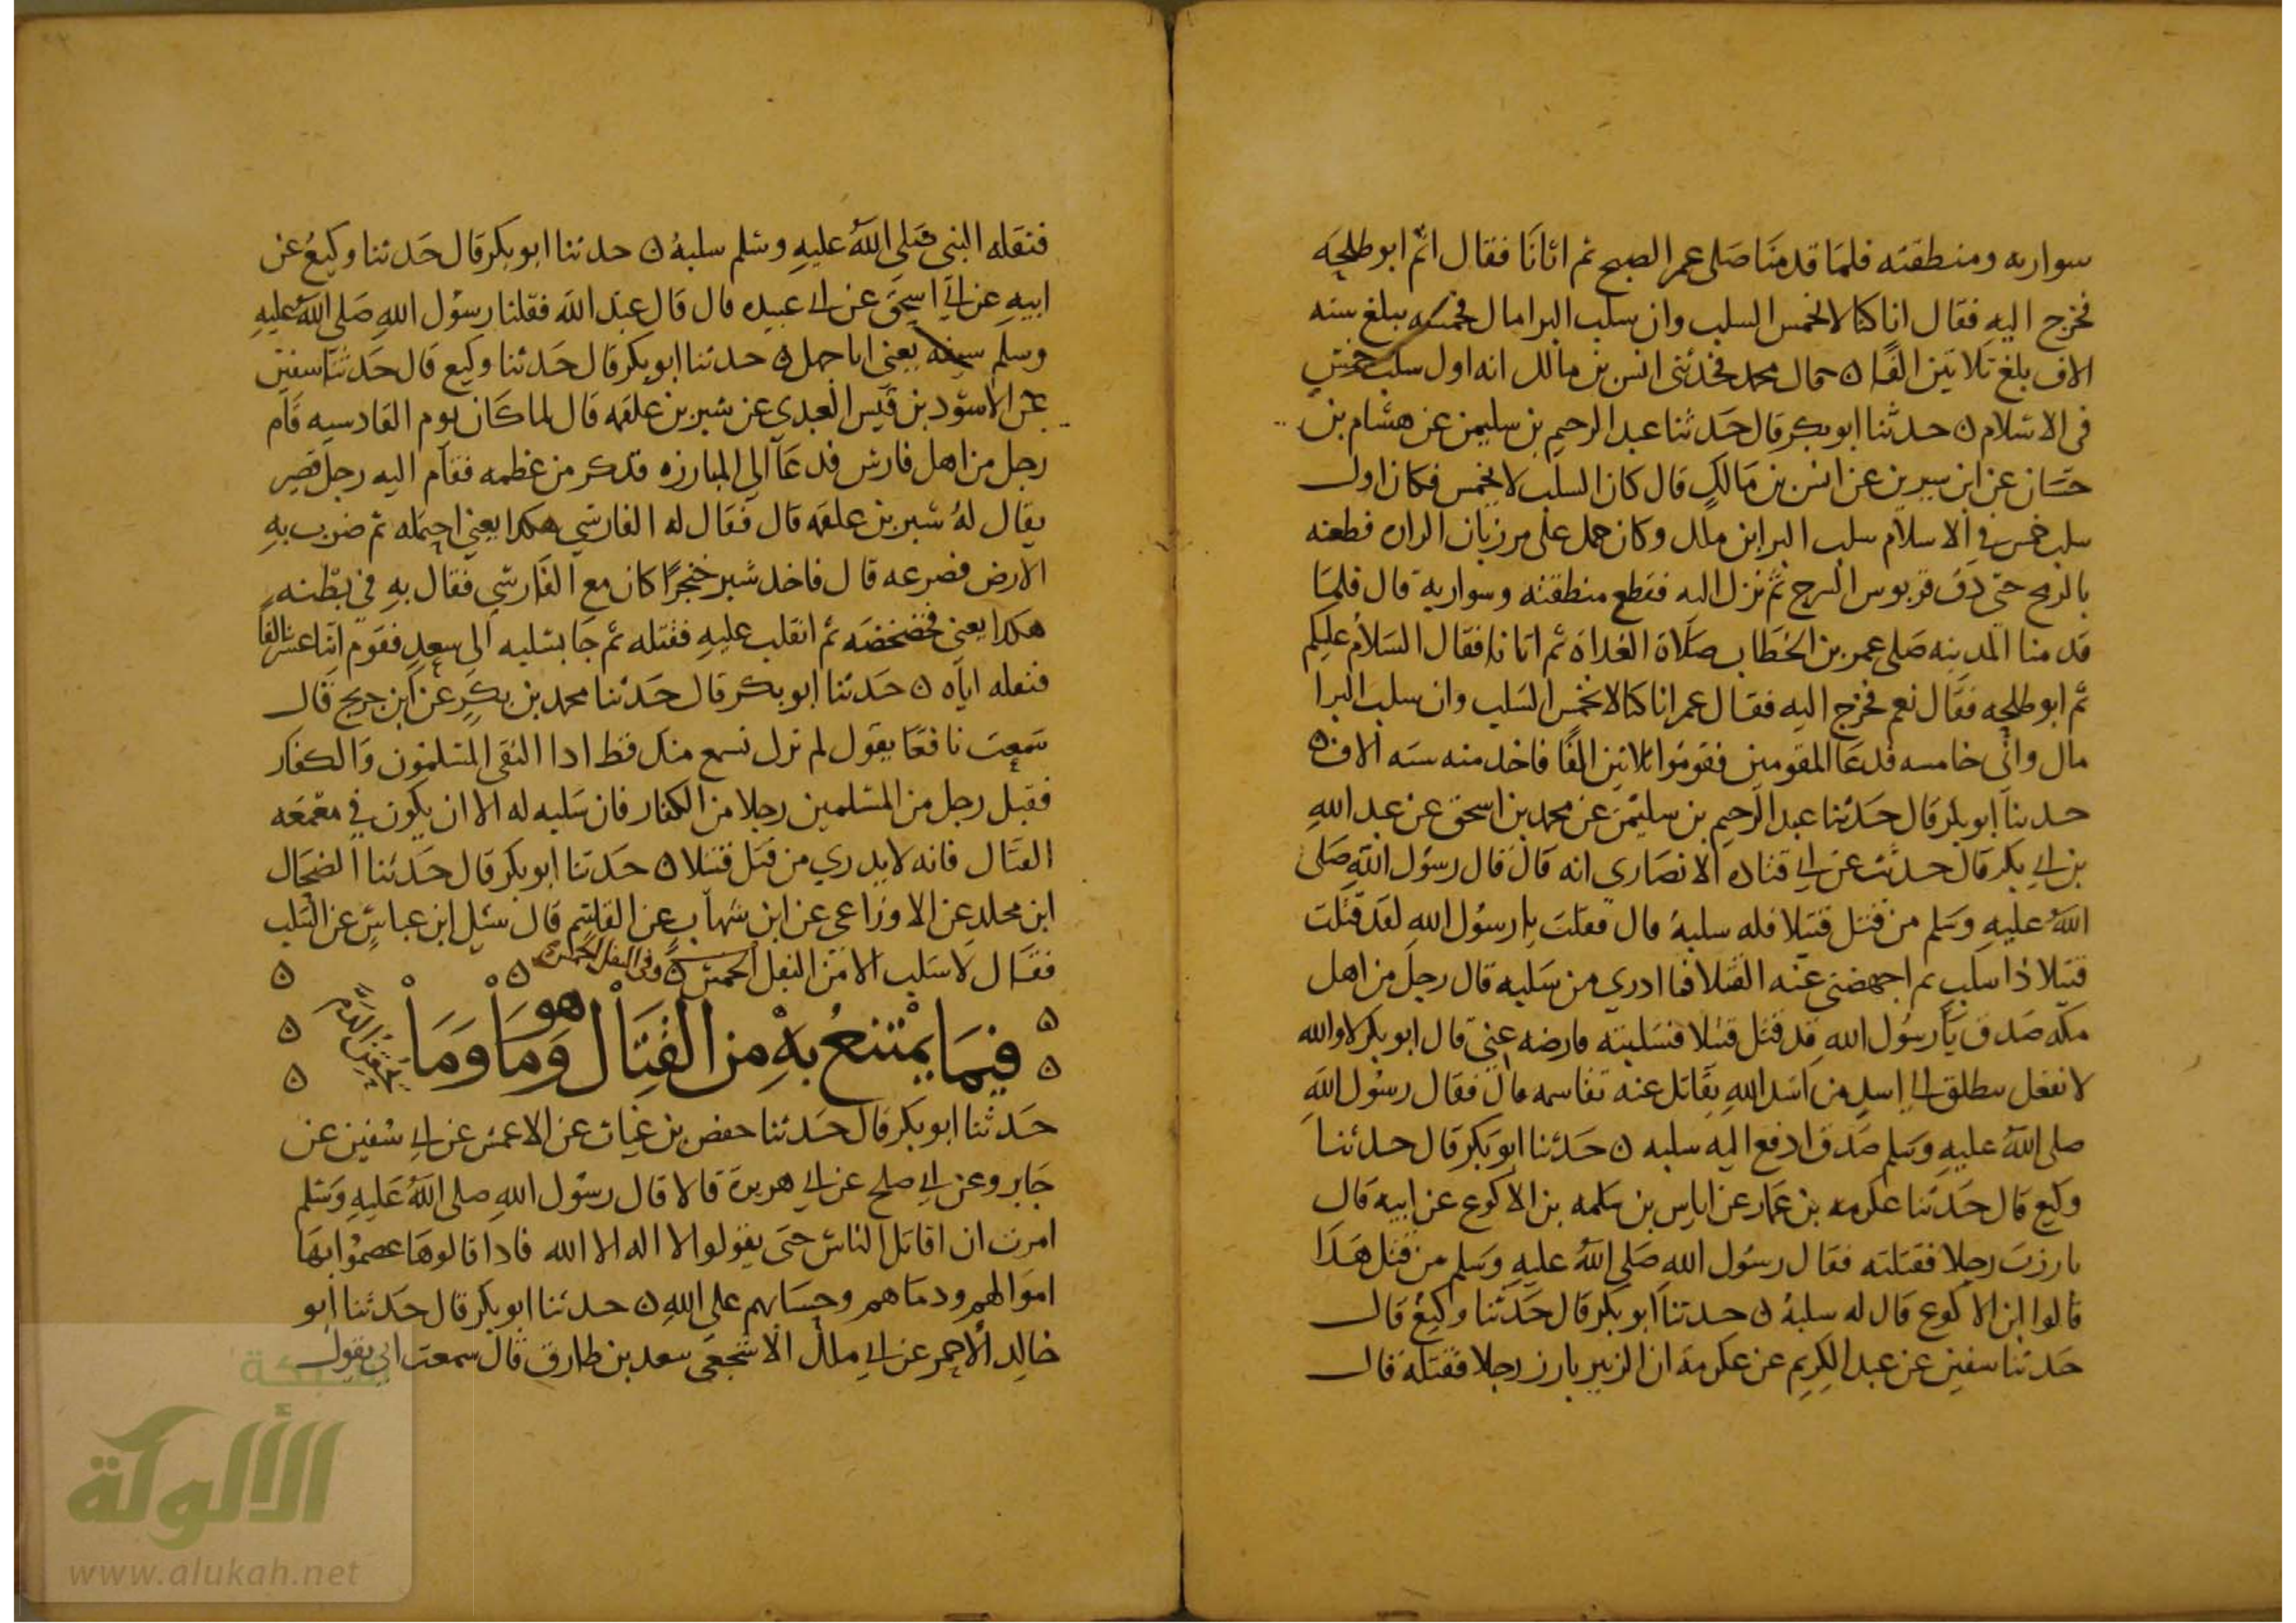 سواريه ومنطقته فلما قدمنا صلى عمر الصبح ثم اتانا فقال اثم ابو طلحه
فخرج اليه فقال انا كنا لا نخمس السلب وان سلب البرا مال فخمسه يبلغ سته
الاف بلغ ثلاثين الفا ن قال محمد فحدثنى انس بن مالك انه اول سلب خمس
فى الاسلام ن حدثنا ابو بكر قال حدثنا عبد الرحيم بن سليمن عن هشام بن
حسان عن ابن سيرين عن انس بن مالك قال كان السلب لا يخمس فكان اول
سلب خمس في الاسلام سلب البرا بن مالك وكان حمل على مرزبان الزاره فطعنه
بالرمح حتى دق قربوس السرج ثم نزل اليه فقطع منطقته وسواريه قال فلما
قدمنا المدينه صلى عمر بن الخطاب صلاة الغداة ثم اتانا فقال السلام عليكم
ثم ابو طلحه فقال نعم فخرج اليه فقال عمر انا كنا لا نخمس السلب وان سلب البرا
مال وانى خامسه فدعا المقومين فقوموا ثلاثين الفا فاخذ منه سته الاف ن
حدثنا ابو بكر قال حدثنا عبد الرحيم بن سليمن عن محمد بن اسحق عن عبد الله
بن ابي بكر قال حدثت عن ابي قتاده الانصارى انه قال قال رسول الله صلى
الله عليه وسلم من قتل قتيلا فله سلبه قال فقلت يا رسول الله لقد قتلت
قتيلا ذا سلب ثم اجهضنى عنه القتلا فما ادري من سلبه قال رجل من اهل
مكه صدق يا رسول الله قد قتل قتيلا فسلبته فارضه عني قال ابو بكر لا والله
لا تفعل ينطلق الى اسد من اسد الله يقاتل عنه تقاسمه قال فقال رسول الله
صلى الله عليه وسلم صدق ادفع اليه سلبه ن حدثنا ابو بكر قال حدثنا
وكيع قال حدثنا عكرمه بن عمار عن اياس بن سلمه بن الاكوع عن ابيه قال
بارزت رجلا فقتلته فقال رسول الله صلى الله عليه وسلم من قتل هذا
قالوا ابن الاكوع قال له سلبه ن حدثنا ابو بكر قال حدثنا وكيع قال
حدثنا سفين عن عبد الكريم عن عكرمه ان الزبير بارز رجلا فقتله قال
فنفله النبي صلى الله عليه وسلم سلبه ن حدثنا ابو بكر قال حدثنا وكيع عن
ابيه عن ابي اسحق عن ابي عبيده قال قال عبد الله فنفلنا رسول الله صلى الله عليه
وسلم سيفه يعني ابا جهل ن حدثنا ابو بكر قال حدثنا وكيع قال حدثنا سفين
عن الاسود بن قيس العبدي عن شبر بن علقمه قال لما كان يوم القادسيه قام
رجل من اهل فارس فدعا الى المبارزه فذكر من عظمه فقام اليه رجل قصير
يقال له شبر بن علقمه قال فقال له الفارسي هكذا يعني احتمله ثم ضرب به
الارض فصرعه قال فاخذ شبر خنجرا كان مع الفارسي فقال به في بطنه
هكذا يعني فخضخضه ثم انقلب عليه فقتله ثم جا بسلبه الى سعد فقوم اثنا عشر الفا
فنفله اياه ن حدثنا ابو بكر قال حدثنا محمد بن بكر عن ابن جريج قال
سمعت نافعا يقول لم نزل نسمع منذ قط اذا التقى المسلمون والكفار
فقتل رجل من المسلمين رجلا من الكفار فان سلبه له الا ان يكون في معمعه
القتال فانه لا يدري من قتل قتيلا ن حدثنا ابو بكر قال حدثنا الضحاك
ابن مخلد عن الاوزاعي عن ابن شهاب عن القاسم قال سئل ابن عباس عن السلب
فقال لا سلب الا من النفل الخمس ن وفى النفل الخمس ن
فيما يمتنع به من القتال وما هو وما
حدثنا ابو بكر قال حدثنا حفص بن غياث عن الاعمش عن ابي سفين عن
جابر وعن ابي صلح عن ابي هريرة قالا قال رسول الله صلى الله عليه وسلم
امرت ان اقاتل الناس حتى يقولوا لا اله الا الله فاذا قالوها عصموا بها
اموالهم ودماهم وحسابهم على الله ن حدثنا ابو بكر قال حدثنا ابو
خالد الاحمر عن ابي مالك الاشجعي سعد بن طارق قال سمعت ابي يقول
شبكة
الألوكة
www.alukah.net